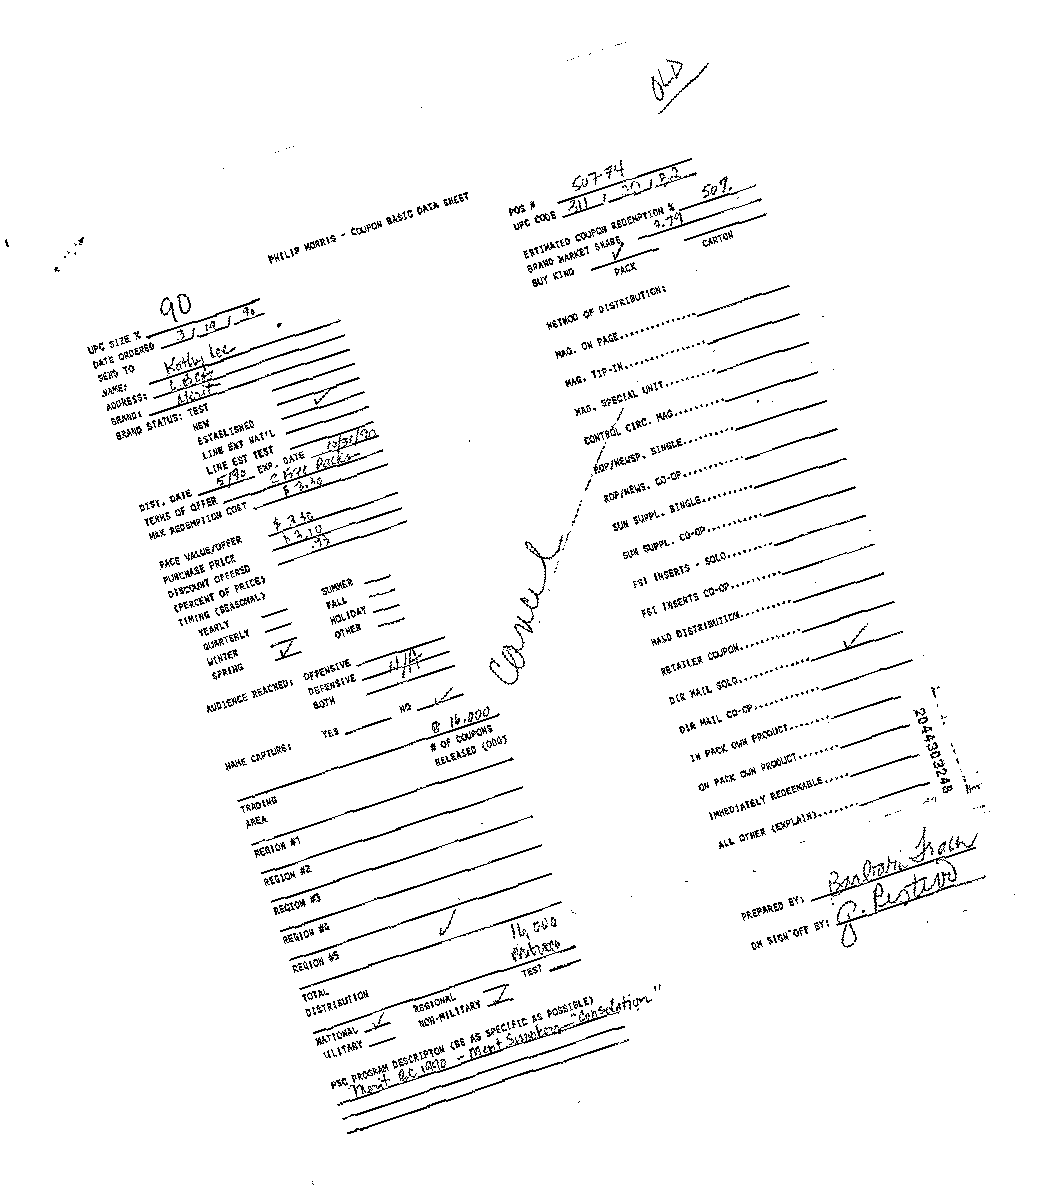 OLD
PHILIP MORRIS - COUPON BASIC DATA SHEET
UPC SIZE % 90
DATE ORDERED 3/19/90
SEND TO
NAME: Kathy Lee
ADDRESS:
BRAND: Merit
BRAND STATUS: TEST
NEW
ESTABLISHED ✓
LINE EXT NAT'L
LINE EST TEST
DIST. DATE 5/90 EXP. DATE 12/31/90
TERMS OF OFFER 2 Free Packs
MAX REDEMPTION COST $ 3.30
FACE VALUE/OFFER $ 3.30
PURCHASE PRICE $ 3.10
DISCOUNT OFFERED .93
(PERCENT OF PRICE)
TIMING (SEASONAL)
YEARLY SUMMER
QUARTERLY FALL
WINTER HOLIDAY
SPRING ✓ OTHER
AUDIENCE REACHED: OFFENSIVE
DEFENSIVE N/A
BOTH
NAME CAPTURE: YES NO ✓
@ 16,000
# OF COUPONS
RELEASED (000)
TRADING
AREA
REGION #1
REGION #2
REGION #3
REGION #4
REGION #5
TOTAL
DISTRIBUTION ✓ 16,000
NATIONAL ✓ REGIONAL TEST
MILITARY NON-MILITARY ✓
PSC PROGRAM DESCRIPTON (BE AS SPECIFIC AS POSSIBLE)
Merit 1990 - Merit Smokers "Consolation"
Cancel
POS # 50774
UPC CODE 311 / 20 / 82
ESTIMATED COUPON REDEMPTION % 50%
BRAND MARKET SHARE 3.79
BUY KIND ✓
PACK CARTON
METHOD OF DISTRIBUTION:
MAG. ON PAGE
MAG. TIP-IN
MAG. SPECIAL UNIT
CONTROL CIRC. MAG.
ROP/NEWSP. SINGLE
ROP/NEWS. CO-OP
SUN SUPPL. SINGLE
SUN SUPPL. CO-OP
FSI INSERTS - SOLO
FSI INSERTS CO-OP
HAND DISTRIBUTION
RETAILER COUPON
DIR MAIL SOLO ✓
DIR MAIL CO-OP
IN PACK OWN PRODUCT
ON PACK OWN PRODUCT
IMMEDIATELY REDEEMABLE
ALL OTHER (EXPLAIN)
2044303248
PREPARED BY: Barbara
DM SIGN-OFF BY: